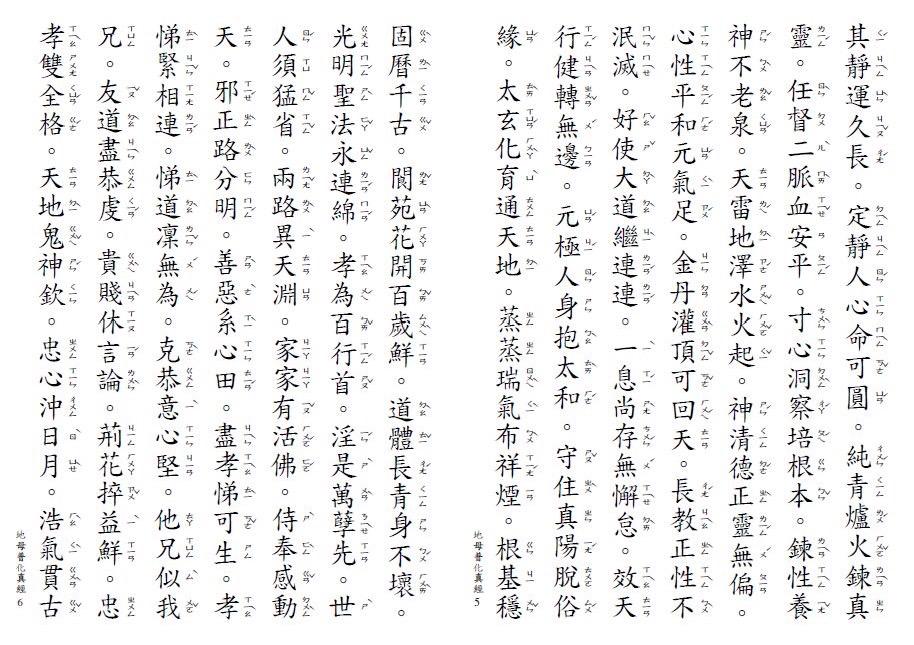 其靜運久長。定靜人心命可圓。純青爐火鍊真
靈。任督二脈血安平。寸心洞察培根本。鍊性養
神不老泉。天雷地澤水火起。神清德正靈無偏。
心性平和元氣足。金丹灌頂可回天。長教正性不
泯滅。好使大道繼連連。一息尚存無懈怠。效天
行健轉無邊。元極人身抱太和。守住真陽脫俗
緣。太玄化育通天地。蒸蒸瑞氣布祥煙。根基穩
地母普化真經 5
固曆千古。閬苑花開百歲鮮。道體長青身不壞。
光明聖法永連綿。孝為百行首。淫是萬孽先。世
人須猛省。兩路異天淵。家家有活佛。侍奉感動
天。邪正路分明。善惡系心田。盡孝悌可生。孝
悌緊相連。悌道凜無為。克恭意心堅。他兄似我
兄。友道盡恭虔。貴賤休言論。荊花捽益鮮。忠
孝雙全格。天地鬼神欽。忠心沖日月。浩氣貫古
地母普化真經 6